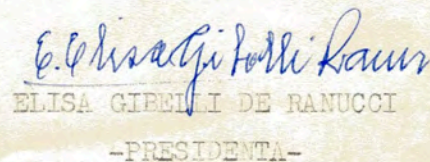 E. Elisa Gibelli Ranucci
ELISA GIBELLI DE RANUCCI
-PRESIDENTA-